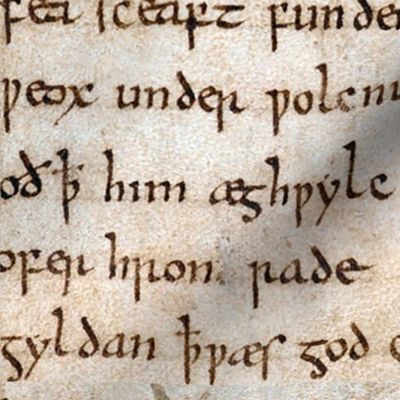 fea sceaft funde
ƿeox under ƿolcn
oð ꝥ him æghƿylc
ofer hron rade
gyldan ꝥ ƿæs god